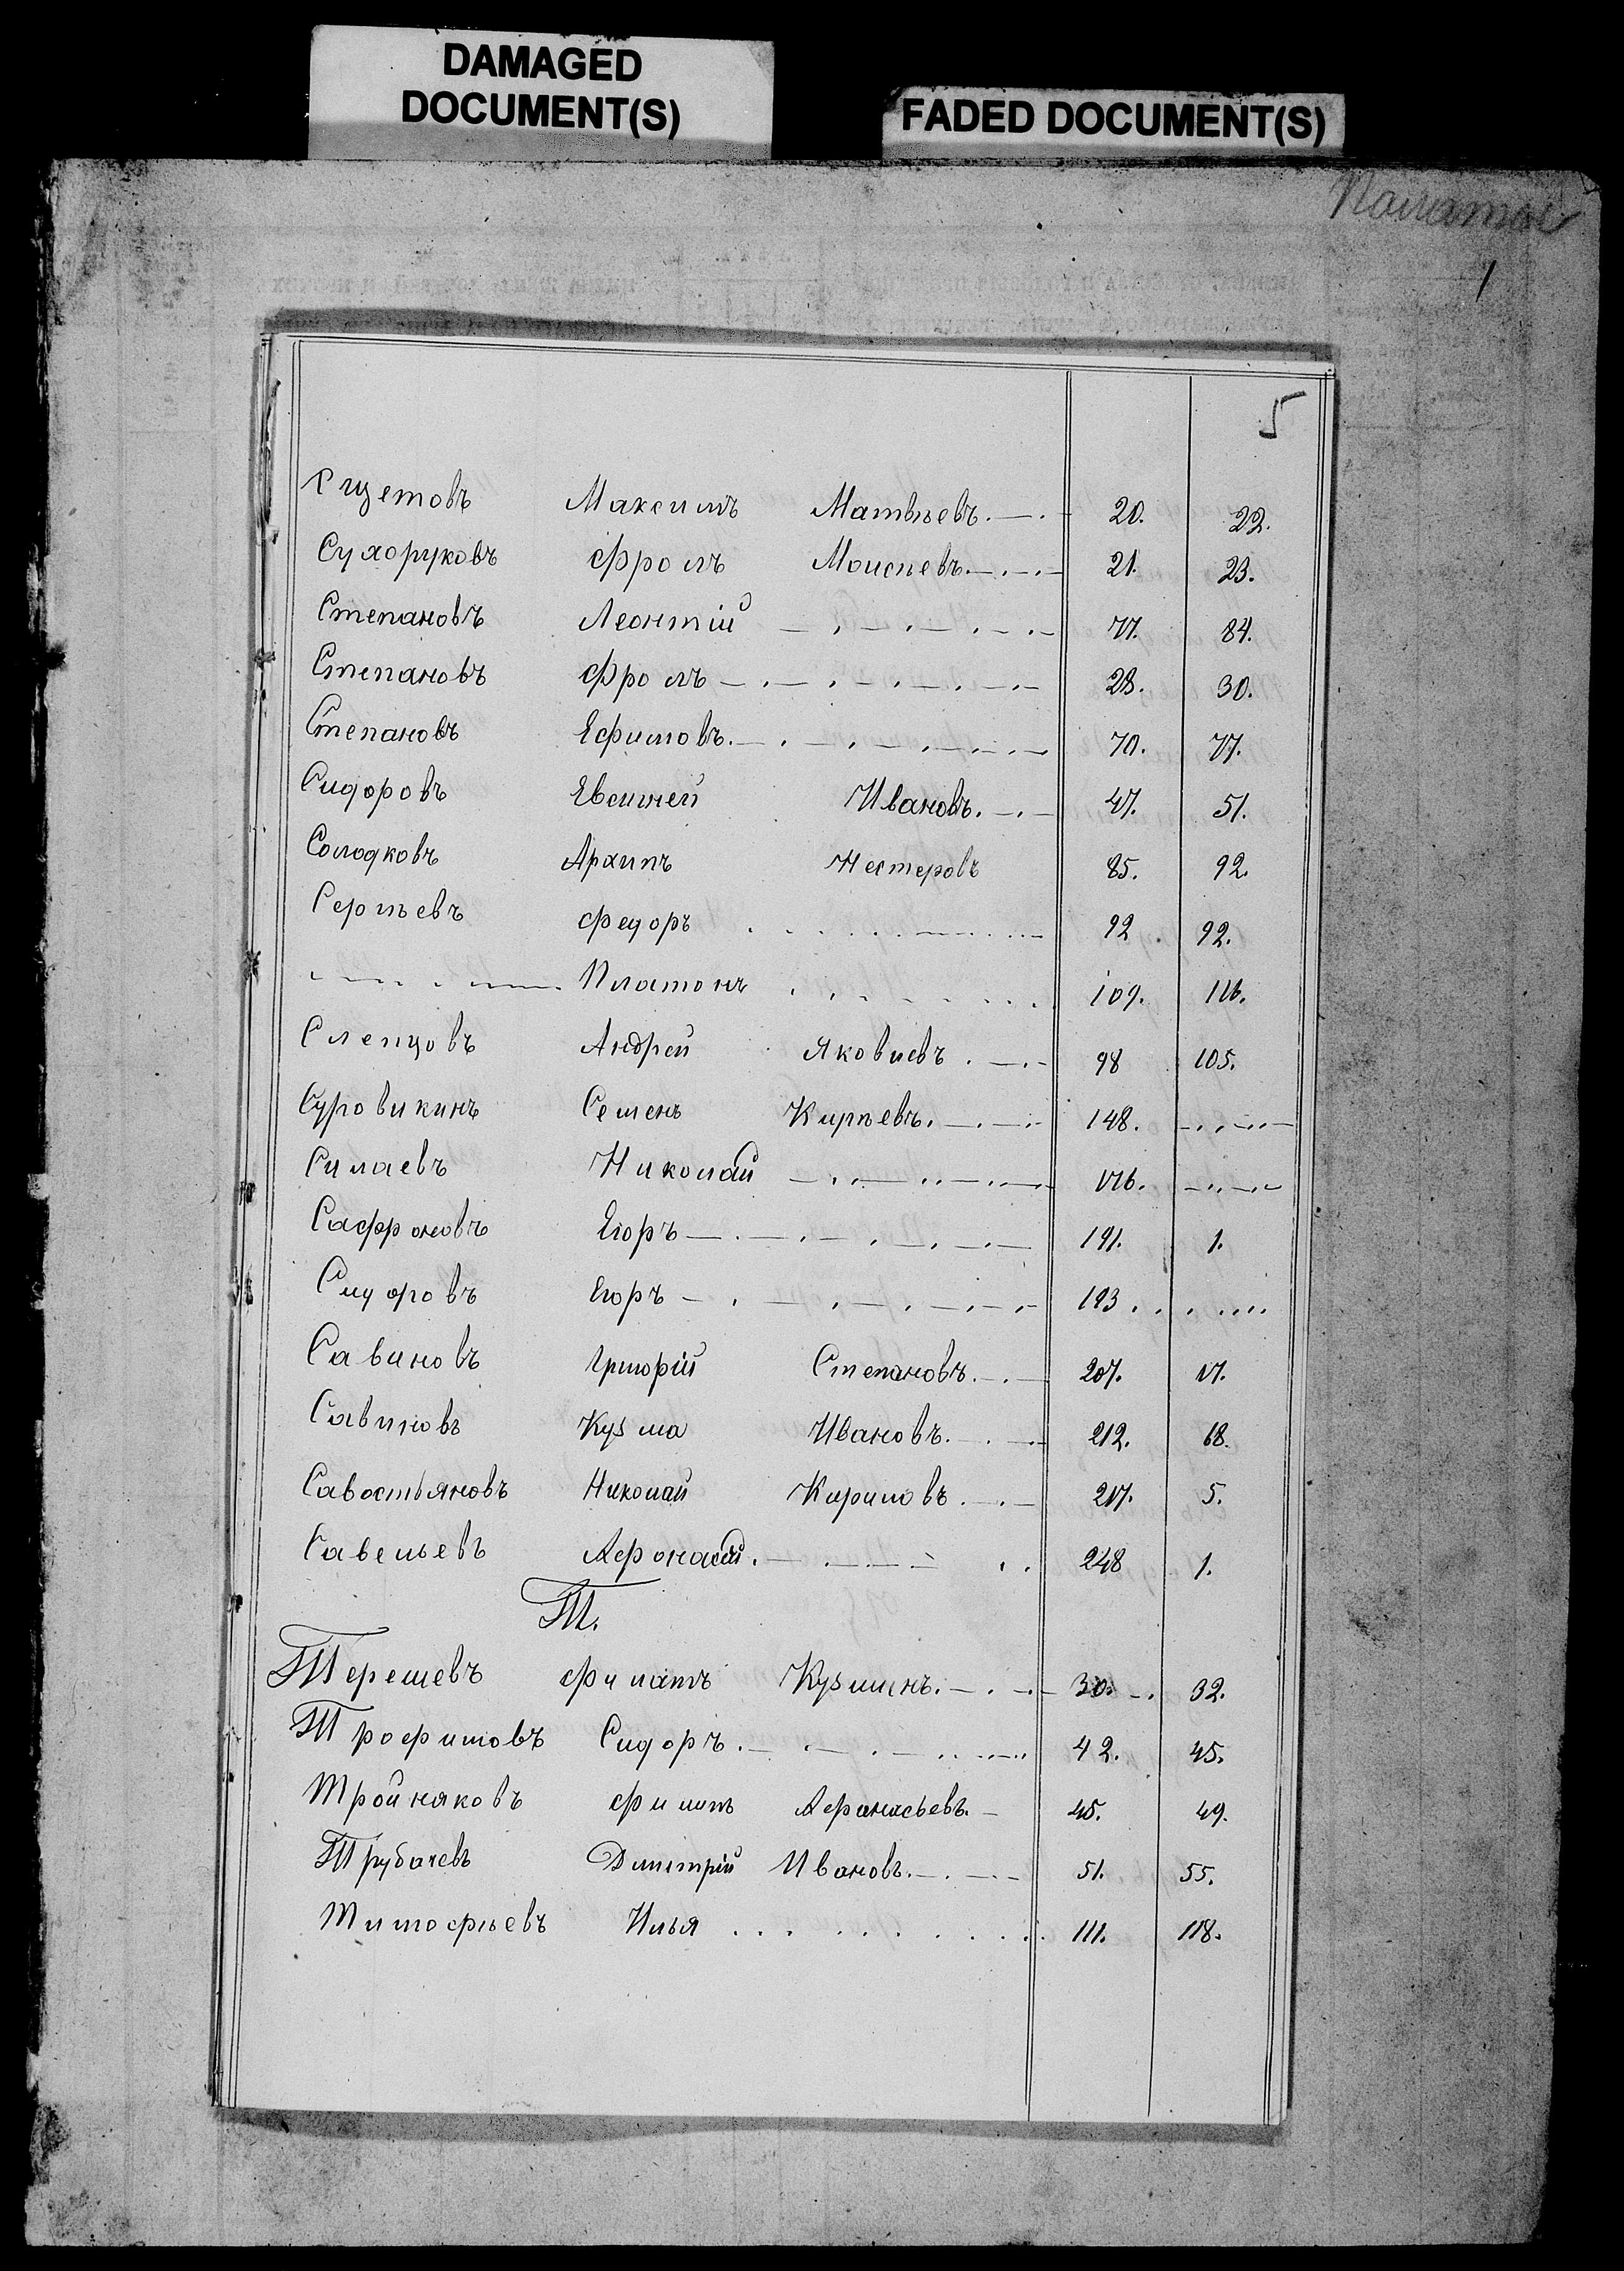 DAMAGED
DOCUMENT(S)
FADED DOCUMENT(S)
1
5
Счетовъ Максимъ Матвѣевъ. 20. 22.
Сухоруковъ Фролъ Моисѣевъ. 21. 23.
Степановъ Леонтій 77. 84.
Степановъ Фролъ 28. 30.
Степановъ Ефимовъ. 70. 77.
Сидоровъ Евсигней Ивановъ. 47. 51.
Солодковъ Архипъ Нестеровъ 85. 92.
Сергѣевъ Федоръ 92. 92.
Платонъ 109. 116.
Слепцовъ Андрей Яковлевъ. 98 105.
Суровикинъ Семенъ Кирѣевъ. 148.
Силаевъ Николай 176.
Сафроновъ Егоръ 191. 1.
Сидоровъ Егоръ 193.
Савиновъ Григорій Степановъ. 207. 17.
Савиновъ Кузма Ивановъ. 212. 68.
Савостьяновъ Николай Кириловъ. 217. 5.
Савельевъ Афонасій. 248 1.
Т.
Терешевъ Филатъ Кузминъ. 30. 32.
Трофимовъ Сидоръ. 42. 45.
Тройняковъ Филипъ Афанасьевъ. 45. 49.
Трубачевъ Димитрій Ивановъ. 51. 55.
Тимофѣевъ Илья 111. 118.